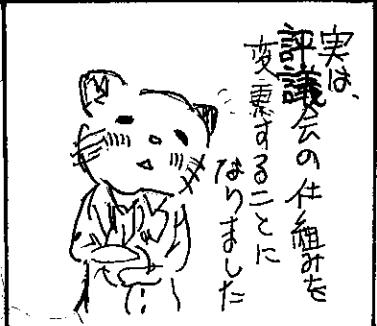 実は、
評議会の仕組みを
変更することに
なりました